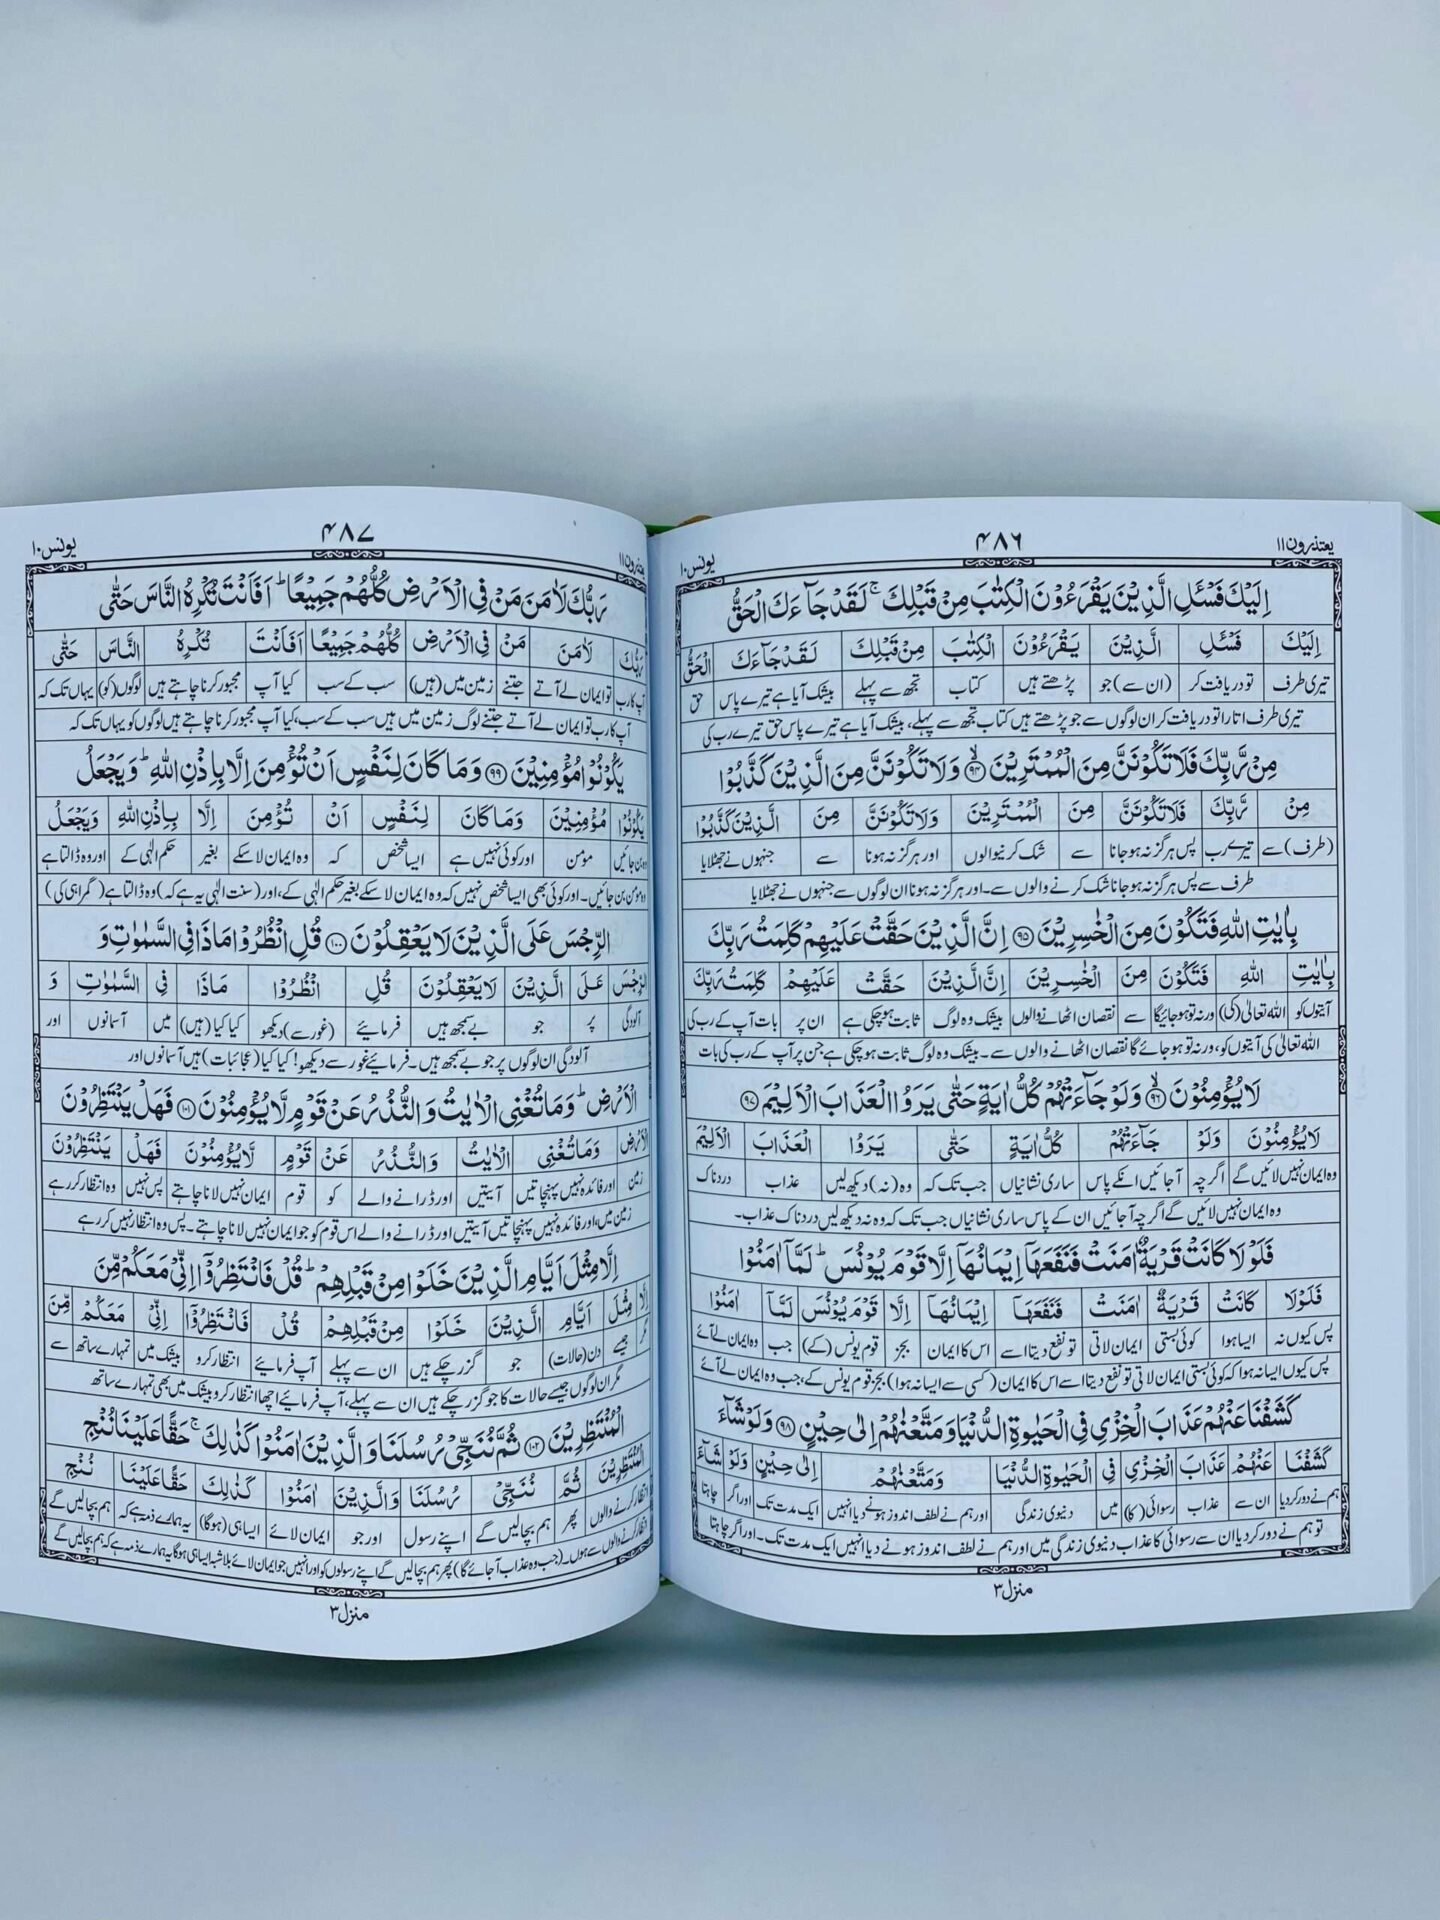 یعتذرون۱۱ ۴۸۶ یونس۱۰
اِلَيْكَ فَسْـَٔلِ الَّذِيْنَ يَقْرَءُوْنَ الْكِتٰبَ مِنْ قَبْلِكَ ۚ لَقَدْ جَآءَكَ الْحَقُّ
اِلَيْكَ فَسْـَٔلِ الَّذِيْنَ يَقْرَءُوْنَ الْكِتٰبَ مِنْ قَبْلِكَ لَقَدْ جَآءَكَ الْحَقُّ
تیری طرف تو دریافت کر (ان سے) جو پڑھتے ہیں کتاب تجھ سے پہلے بیشک آیا ہے تیرے پاس حق
تیری طرف اتارا تو دریافت کر ان لوگوں سے جو پڑھتے ہیں کتاب تجھ سے پہلے، بیشک آیا ہے تیرے پاس حق تیرے رب کی
مِنْ رَّبِّكَ فَلَا تَكُوْنَنَّ مِنَ الْمُمْتَرِيْنَ ۙ۹۴ وَلَا تَكُوْنَنَّ مِنَ الَّذِيْنَ كَذَّبُوْا
مِنْ رَّبِّكَ فَلَا تَكُوْنَنَّ مِنَ الْمُمْتَرِيْنَ وَلَا تَكُوْنَنَّ مِنَ الَّذِيْنَ كَذَّبُوْا
(طرف) سے تیرے رب پس ہرگز نہ ہوجانا سے شک کرنیوالوں اور ہرگز نہ ہونا سے جنہوں نے جھٹلایا
طرف سے پس ہرگز نہ ہوجانا شک کرنے والوں سے۔ اور ہرگز نہ ہونا ان لوگوں سے جنہوں نے جھٹلایا
بِاٰيٰتِ اللّٰهِ فَتَكُوْنَ مِنَ الْخٰسِرِيْنَ ۹۵ اِنَّ الَّذِيْنَ حَقَّتْ عَلَيْهِمْ كَلِمَتُ رَبِّكَ
بِاٰيٰتِ اللّٰهِ فَتَكُوْنَ مِنَ الْخٰسِرِيْنَ اِنَّ الَّذِيْنَ حَقَّتْ عَلَيْهِمْ كَلِمَتُ رَبِّكَ
آیتوں کو اللہ تعالیٰ (کی) ورنہ تو ہوجائیگا سے نقصان اٹھانے والوں بیشک وہ لوگ ثابت ہوچکی ہے ان پر بات آپ کے رب کی
اللہ تعالیٰ کی آیتوں کو، ورنہ تو ہوجائے گا نقصان اٹھانے والوں سے۔ بیشک وہ لوگ ثابت ہوچکی ہے جن پر آپ کے رب کی بات
لَا يُؤْمِنُوْنَ ۙ۹۶ وَلَوْ جَآءَتْهُمْ كُلُّ اٰيَةٍ حَتّٰى يَرَوُا الْعَذَابَ الْاَلِيْمَ ۹۷
لَا يُؤْمِنُوْنَ وَلَوْ جَآءَتْهُمْ كُلُّ اٰيَةٍ حَتّٰى يَرَوُا الْعَذَابَ الْاَلِيْمَ
وہ ایمان نہیں لائیں گے اگرچہ آجائیں انکے پاس ساری نشانیاں جب تک کہ وہ (نہ) دیکھ لیں عذاب دردناک
وہ ایمان نہیں لائیں گے اگرچہ آجائیں ان کے پاس ساری نشانیاں جب تک کہ وہ نہ دیکھ لیں دردناک عذاب۔
فَلَوْلَا كَانَتْ قَرْيَةٌ اٰمَنَتْ فَنَفَعَهَاۤ اِيْمَانُهَاۤ اِلَّا قَوْمَ يُوْنُسَ ؕ لَمَّاۤ اٰمَنُوْا
فَلَوْلَا كَانَتْ قَرْيَةٌ اٰمَنَتْ فَنَفَعَهَاۤ اِيْمَانُهَاۤ اِلَّا قَوْمَ يُوْنُسَ لَمَّاۤ اٰمَنُوْا
پس کیوں نہ ایسا ہوا کوئی بستی ایمان لاتی تو نفع دیتا اسے اس کا ایمان بجز قوم یونس (کے) جب وہ ایمان لے آئے
پس کیوں ایسا نہ ہوا کہ کوئی بستی ایمان لاتی تو نفع دیتا اسے اس کا ایمان (کسی سے ایسا نہ ہوا) بجز قوم یونس کے، جب وہ ایمان لے آئے
كَشَفْنَا عَنْهُمْ عَذَابَ الْخِزْيِ فِي الْحَيٰوةِ الدُّنْيَا وَمَتَّعْنٰهُمْ اِلٰى حِيْنٍ ۹۸ وَلَوْ شَآءَ
كَشَفْنَا عَنْهُمْ عَذَابَ الْخِزْيِ فِي الْحَيٰوةِ الدُّنْيَا وَمَتَّعْنٰهُمْ اِلٰى حِيْنٍ وَلَوْ شَآءَ
ہم نے دور کردیا ان سے عذاب رسوائی (کا) میں دنیوی زندگی اور ہم نے لطف اندوز ہونے دیا انہیں ایک مدت تک اور اگر چاہتا
تو ہم نے دور کردیا ان سے رسوائی کا عذاب دنیوی زندگی میں اور ہم نے لطف اندوز ہونے دیا انہیں ایک مدت تک۔ اور اگر چاہتا
منزل۳
یعتذرون۱۱ ۴۸۷ یونس۱۰
رَبُّكَ لَاٰمَنَ مَنْ فِي الْاَرْضِ كُلُّهُمْ جَمِيْعًا ؕ اَفَاَنْتَ تُكْرِهُ النَّاسَ حَتّٰى
رَبُّكَ لَاٰمَنَ مَنْ فِي الْاَرْضِ كُلُّهُمْ جَمِيْعًا اَفَاَنْتَ تُكْرِهُ النَّاسَ حَتّٰى
آپ کا رب تو ایمان لے آتے جتنے زمین میں (ہیں) سب کے سب کیا آپ مجبور کرنا چاہتے ہیں لوگوں (کو) یہاں تک کہ
آپ کا رب تو ایمان لے آتے جتنے لوگ زمین میں ہیں سب کے سب، کیا آپ مجبور کرنا چاہتے ہیں لوگوں کو یہاں تک کہ
يَكُوْنُوْا مُؤْمِنِيْنَ ۹۹ وَمَا كَانَ لِنَفْسٍ اَنْ تُؤْمِنَ اِلَّا بِاِذْنِ اللّٰهِ ؕ وَيَجْعَلُ
يَكُوْنُوْا مُؤْمِنِيْنَ وَمَا كَانَ لِنَفْسٍ اَنْ تُؤْمِنَ اِلَّا بِاِذْنِ اللّٰهِ وَيَجْعَلُ
وہ بن جائیں مؤمن اور کوئی نہیں ہے ایسا شخص کہ وہ ایمان لا سکے بغیر حکم الٰہی کے اور وہ ڈالتا ہے
وہ مؤمن بن جائیں۔ اور کوئی بھی ایسا شخص نہیں کہ وہ ایمان لا سکے بغیر حکم الٰہی کے، اور (سنت الٰہی یہ ہے کہ) وہ ڈالتا ہے (گمراہی کی)
الرِّجْسَ عَلَى الَّذِيْنَ لَا يَعْقِلُوْنَ ۱۰۰ قُلِ انْظُرُوْا مَاذَا فِي السَّمٰوٰتِ وَ
الرِّجْسَ عَلَى الَّذِيْنَ لَا يَعْقِلُوْنَ قُلِ انْظُرُوْا مَاذَا فِي السَّمٰوٰتِ وَ
آلودگی پر جو بے سمجھ ہیں فرمائیے (غور سے) دیکھو کیا کیا (ہیں) میں آسمانوں اور
آلودگی ان لوگوں پر جو بے سمجھ ہیں۔ فرمائیے غور سے دیکھو! کیا کیا (عجائبات) ہیں آسمانوں اور
الْاَرْضِ ؕ وَمَا تُغْنِي الْاٰيٰتُ وَالنُّذُرُ عَنْ قَوْمٍ لَّا يُؤْمِنُوْنَ ۱۰۱ فَهَلْ يَنْتَظِرُوْنَ
الْاَرْضِ وَمَا تُغْنِي الْاٰيٰتُ وَالنُّذُرُ عَنْ قَوْمٍ لَّا يُؤْمِنُوْنَ فَهَلْ يَنْتَظِرُوْنَ
زمین اور فائدہ نہیں پہنچاتیں آیتیں اور ڈرانے والے کو قوم ایمان نہیں لانا چاہتے پس نہیں وہ انتظار کررہے
زمین میں، اور فائدہ نہیں پہنچاتیں آیتیں اور ڈرانے والے اس قوم کو جو ایمان نہیں لانا چاہتے۔ پس وہ انتظار نہیں کررہے
اِلَّا مِثْلَ اَيَّامِ الَّذِيْنَ خَلَوْا مِنْ قَبْلِهِمْ ؕ قُلْ فَانْتَظِرُوْۤا اِنِّيْ مَعَكُمْ مِّنَ
اِلَّا مِثْلَ اَيَّامِ الَّذِيْنَ خَلَوْا مِنْ قَبْلِهِمْ قُلْ فَانْتَظِرُوْۤا اِنِّيْ مَعَكُمْ مِّنَ
مگر جیسے دن (حالات) جو گزر چکے ہیں ان سے پہلے آپ فرمائیے انتظار کرو بیشک میں تمہارے ساتھ سے
مگر ان لوگوں جیسے حالات کا جو گزر چکے ہیں ان سے پہلے، آپ فرمائیے اچھا انتظار کرو بیشک میں بھی تمہارے ساتھ
الْمُنْتَظِرِيْنَ ۱۰۲ ثُمَّ نُنَجِّيْ رُسُلَنَا وَالَّذِيْنَ اٰمَنُوْا كَذٰلِكَ ۚ حَقًّا عَلَيْنَا نُنْجِ
الْمُنْتَظِرِيْنَ ثُمَّ نُنَجِّيْ رُسُلَنَا وَالَّذِيْنَ اٰمَنُوْا كَذٰلِكَ حَقًّا عَلَيْنَا نُنْجِ
انتظار کرنے والوں پھر ہم بچالیں گے اپنے رسول اور جو ایمان لائے ایسا ہی (ہوگا) یہ ہمارے ذمہ ہے کہ ہم بچالیں گے
انتظار کرنے والوں سے ہوں۔ (جب وہ عذاب آجائے گا) پھر ہم بچالیں گے اپنے رسولوں کو اور انہیں جو ایمان لائے بلاشبہ ایسا ہی ہوگا یہ ہمارے ذمہ ہے کہ ہم بچالیں گے
منزل۳